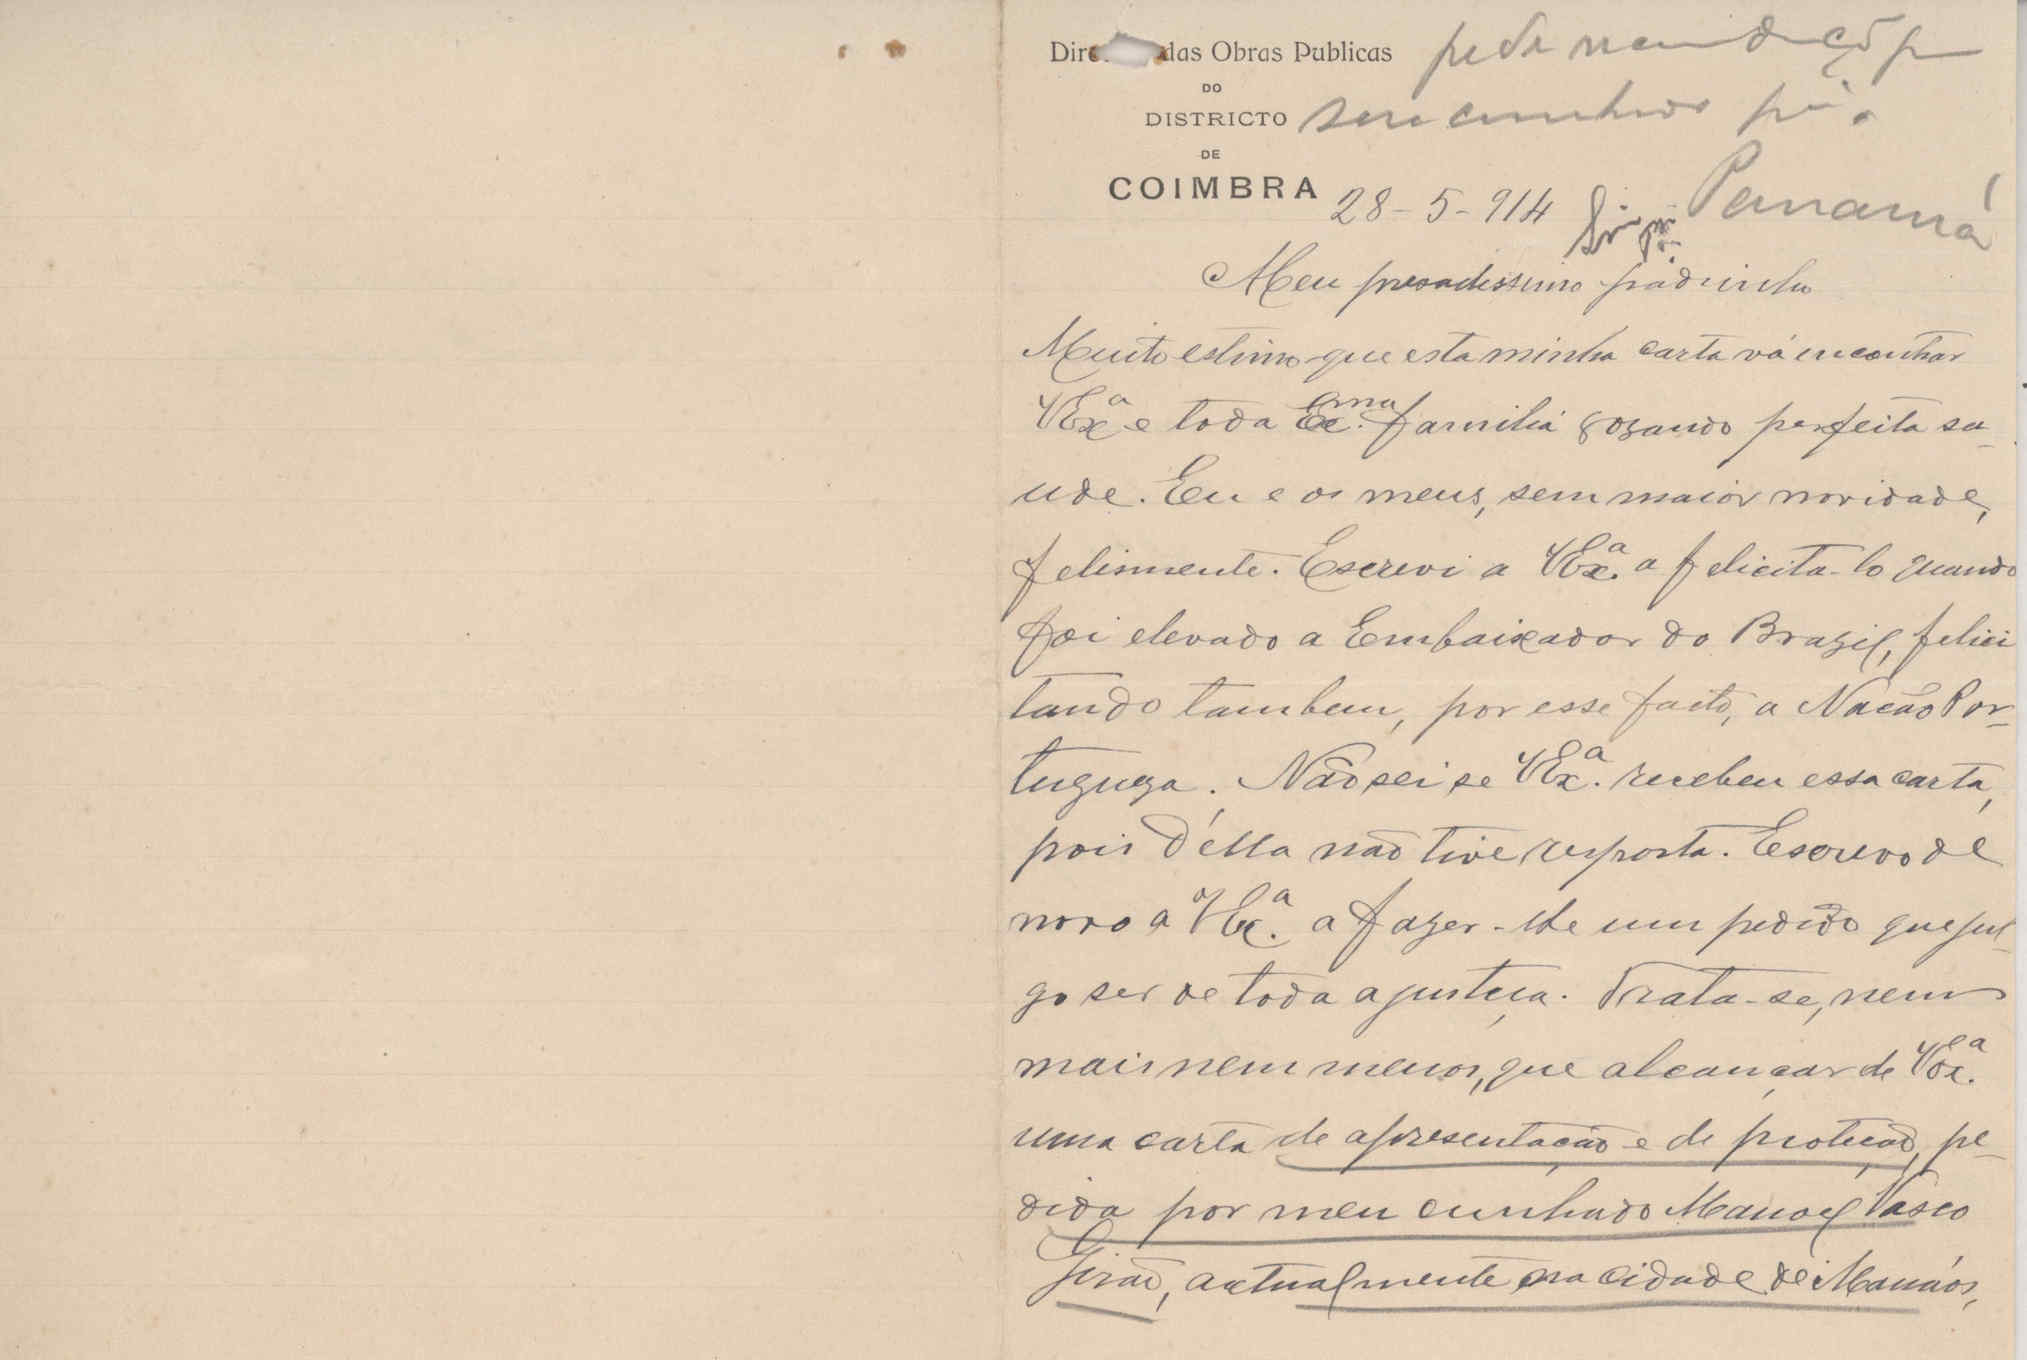 das Obras Publicas
DO
DISTRICTO
DE
COIMBRA
28-5-914
Panamá
Meu presadissimo padrinho
Muito estimo que esta minha carta vá encontrar
VExª e toda Exma. familia gosando perfeita sa-
ude. Eu e os meus, sem maior novidade,
felismente. Escrevi a VExª. a felicita-lo quando
foi elevado a Embaixador do Brazil, felici
tando tambem, por esse facto, a Nação Por-
tugueza. Não sei se VExª. recebeu essa carta,
pois d'élla não tive resposta. Escrevo de
novo a VExª. a fazer-lhe um pedido que jul-
go ser de toda a justiça. Trata-se, nem
mais nem menos, que alcançar de VExª.
uma carta de apresentação e de proteção, pe-
dida por meu cunhado Manoel Vasco
Girão, actualmente na cidade de Manáos,